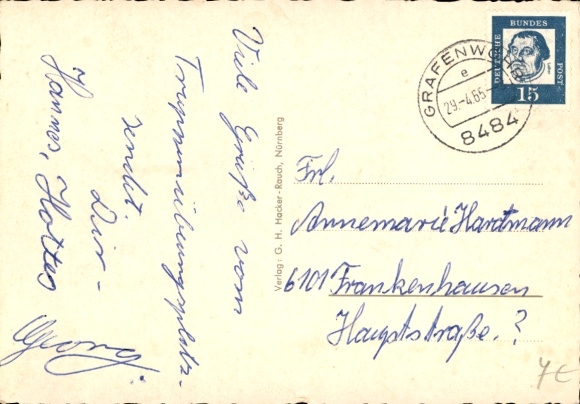 Viele Grüße vom
Truppenübungsplatz.
sendet
Dir -
Hannes, Hottes
Georg
Verlag: G. H. Hacker-Rauch, Nürnberg
GRAFENWÖHR
e
29.-4.65
8484
DEUTSCHE
BUNDES
POST
15
Frl.
Annemarie Hardtmann
6101 Frankenhausen
Hauptstraße.?
7€